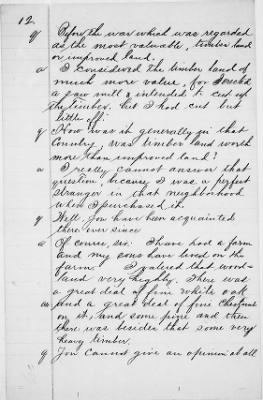 12.
q Before the war which was regarded
as the most valuable, timber land
or improved land.
a I considered the timber land of
much more value, for I had a
saw mill & intended to cut up
the timber, but I had cut but
little off.
q How was it generally in that
Country, was timber land worth
more than improved land?
a I really cannot answer that
question, because I was a perfect
stranger in that neighborhood
when I purchased it.
q Well. You have been acquainted
there ever since
a Of course, sir. I have had a farm
and my sons have lived on the
farm. I valued that wood-
land very highly. There was
a great deal of fine white oak
and a great deal of fine Chestnut
on it, and some pine and then
there was besides that some very
heavy timber.
q You cannot give an opinion at all